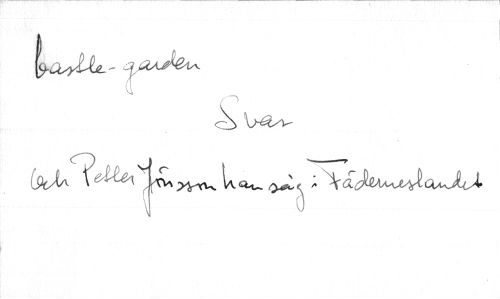 bastle-garden
Svar
och Petter Jönsson han såg i Fäderneslandet